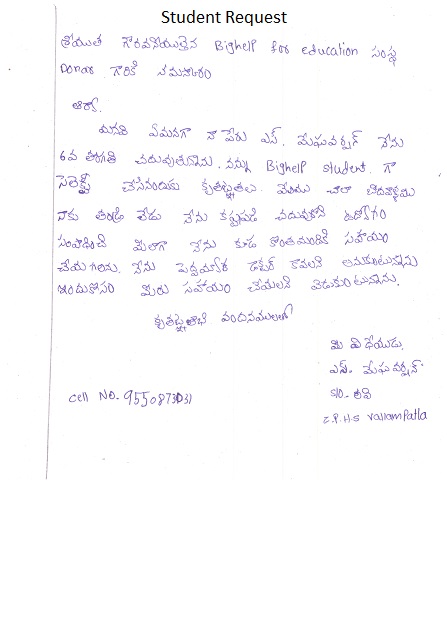 Student Request
శ్రీయుత గౌరవనీయులైన Bighelp for education సంస్థ
Donar గారికి నమస్కారం
ఆర్యా.
మనవి ఏమనగా నా పేరు ఎస్. మేఘవర్షన్ నేను
6వ తరగతి చదువుతున్నాను. నన్ను Bighelp student గా
సెలెక్ట్ చేసినందుకు కృతజ్ఞతలు. మేము చాలా బీదవాళ్ళము
నాకు తండ్రి లేడు నేను కష్టపడి చదువుకొని ఉద్యోగం
సంపాదించి మీలాగా నేను కూడ కొంతమందికి సహాయం
చేయగలను. నేను పెద్దయ్యాక డాక్టర్ కావలని అనుకుంటున్నాను
ఇందుకోసం మీరు సహాయం చేయలని వేడుకుంటున్నాను.
కృతజ్ఞతాభి వందనములతో
మీ విధేయుడు.
ఎస్. మేఘవర్షన్
S/o. రవి
Z.P.H.S vallampatla
Cell NO. 9550873031